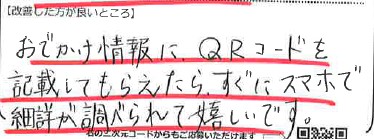 【改善した方が良いところ】
おでかけ情報に、QRコードを
記載してもらえたら、すぐにスマホで
細詳が調べられて嬉しいです。
右の二次元コードからもご応募いただけます